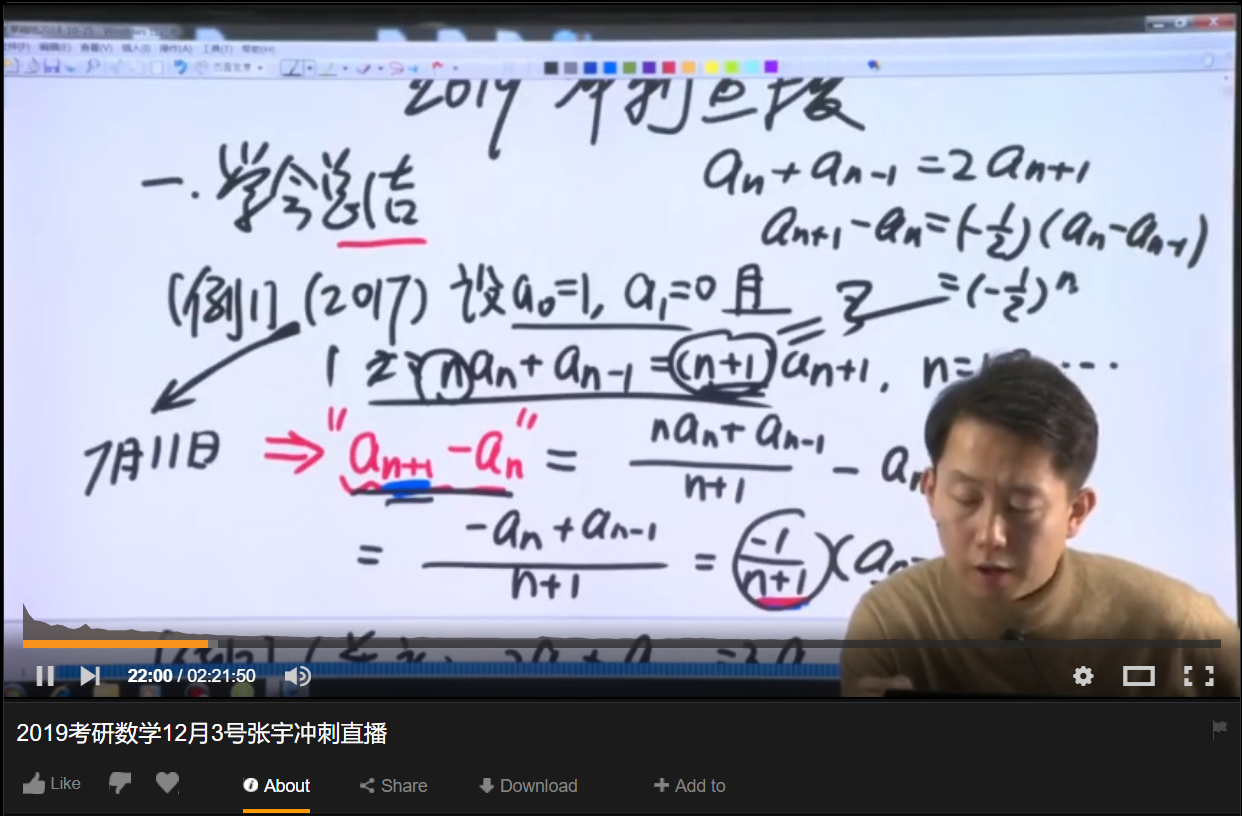 文件(F) 编辑(E) 查看(V) 插入(I) 操作(A) 工具(T) 帮助(H)
页面宽度
2019 冲刺
一.学会总结
a_n + a_{n-1} = 2a_{n+1}
a_{n+1} - a_n = (-1/2)(a_n - a_{n-1})
= (-1/2)^n
[例1] (2017) 设 a_0=1, a_1=0 且
n a_n + a_{n-1} = (n+1) a_{n+1}, n=1
7月11日
⇒ "a_{n+1} - a_n" = (n a_n + a_{n-1})/(n+1) - a_n
= (-a_n + a_{n-1})/(n+1) = (-1/(n+1))(a_n
22:00 / 02:21:50
2019考研数学12月3号张宇冲刺直播
Like About Share Download Add to